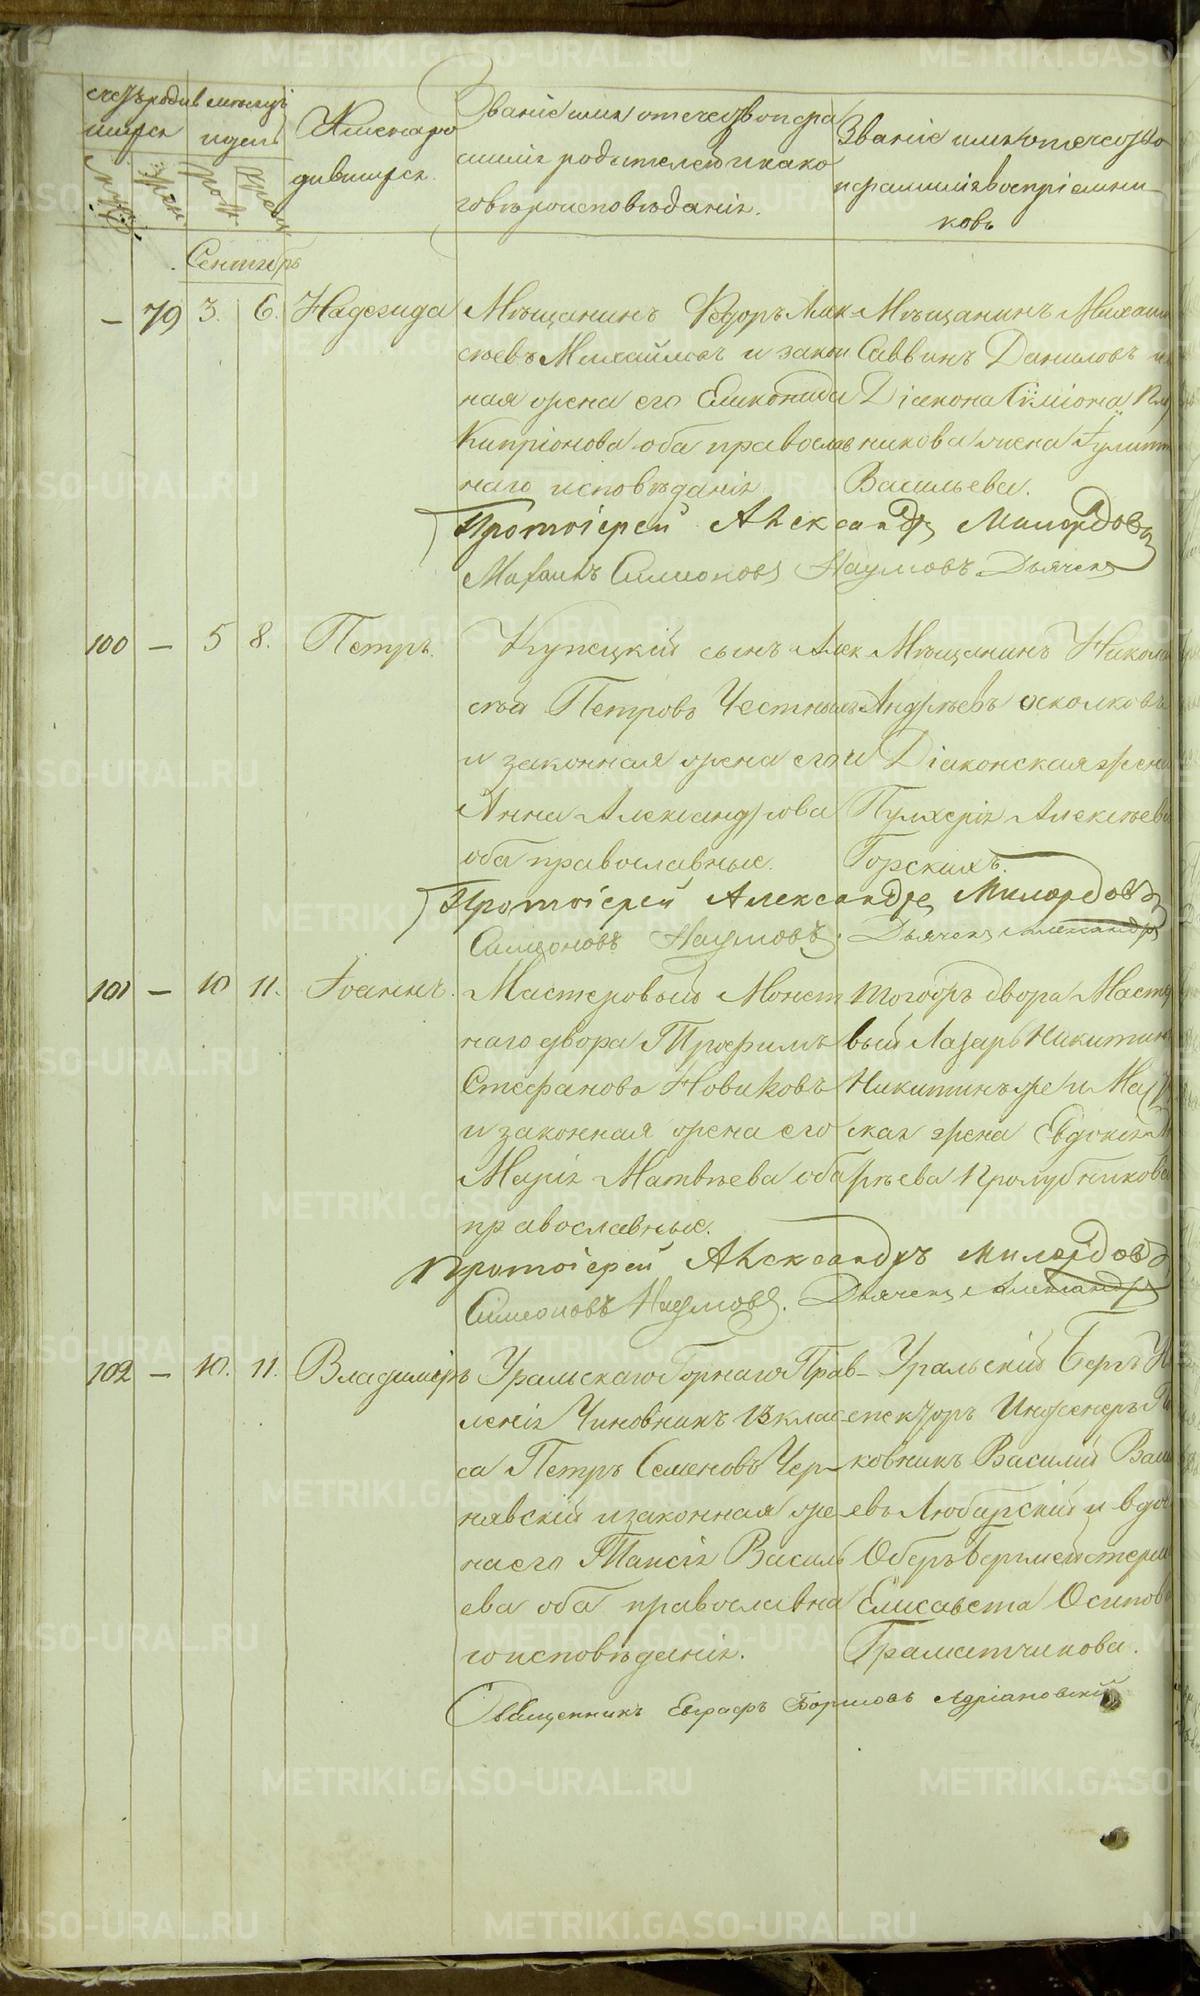 METRIKI.GASO-URAL.RU
счетъ родив
шихся
месяцъ
и день
Имена ро
дившихся.
Званіе имя отечество и фа
милія родителей и како
го вѣроисповѣданія.
Званіе имя отечество
и фамилія воспріемни
ковъ
Сентябрь
— 79 3. 6. Надежида
Мѣщанинъ Федоръ Алек
сѣевъ Михайловъ и закон
ная жена его Еликонида
Кипріонова оба православ
наго исповѣданія
Мѣщанинъ Михаил
Саввинъ Даниловъ и
Діакона Симіона Пл
никова жена Іулитт
Васильева.
Протоіерей Александръ Милордовъ
Михаилъ Симионовъ Наумовъ Дьячекъ
100 — 5 8. Петръ.
Купецкій сынъ Алек
сѣй Петровъ Честныхъ
и законная жена его
Анна Александрова
оба православные.
Мѣщанинъ Никола
Андрѣевъ осколковъ
и Діаконская жена
Пулхерія Алексѣева
Горскихъ.
Протоіерей Александръ Милордовъ
Симеоновъ Наумовъ. Дьячекъ Александръ
101 — 10 11. Іоаннъ.
Мастеровой Монет
наго двора Трофимъ
Стефановъ Новиковъ
и законная жена его
Марія Матвѣева оба
православные.
Тогожъ двора Масте
вый Лазарь Никитин
Никитинъ же и Ма
ская жена Евдокія
рѣева Пролубникова
Протоіерей Александръ Милордовъ
Симеоновъ Наумовъ. Дьячекъ Александръ
102 — 10. 11. Владимiръ
Уральскаго Горнаго Прав-
ленія Чиновникъ 13 клас
са Петръ Семеновъ Чер-
нявскій и законная же
на его Таисія Василь
ева оба православна
го исповѣданія.
Уральскій Бергъ Ин
спекторъ Инженеръ П
ковникъ Василій Васи
евъ Любарскій и вдов
Оберъ Бергмейстерш
Елисавета Осипов
Граматчикова.
Священникъ Евграфъ Борисовъ Адріановскій